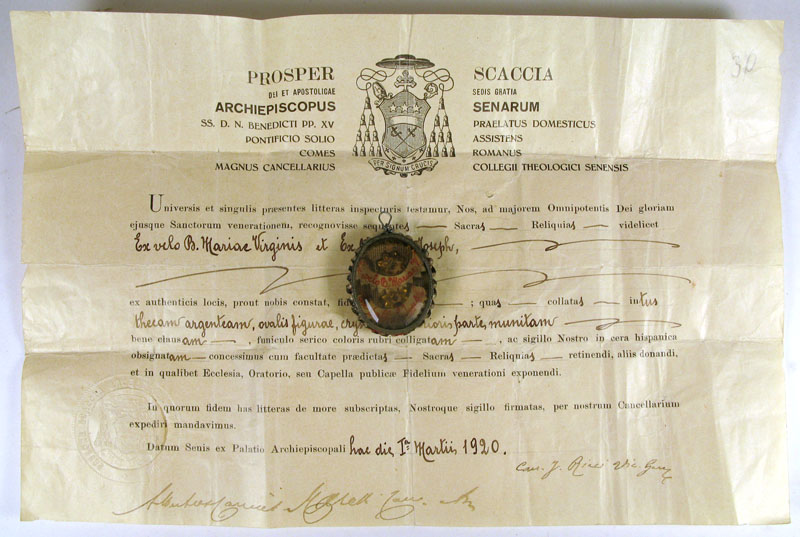 PROSPER SCACCIA
DEI ET APOSTOLICAE SEDIS GRATIA
ARCHIEPISCOPUS SENARUM
SS. D. N. BENEDICTI PP. XV PRAELATUS DOMESTICUS
PONTIFICIO SOLIO ASSISTENS
COMES ROMANUS
MAGNUS CANCELLARIUS COLLEGII THEOLOGICI SENENSIS
PER SIGNUM CRUCIS
30
Universis et singulis præsentes litteras inspecturis testamur, Nos, ad majorem Omnipotentis Dei gloriam
ejusque Sanctorum venerationem, recognovisse sequentes Sacras Reliquias videlicet
Ex velo B. Mariae Virginis et Ex Joseph,
ex authenticis locis, prout nobis constat, ; quas collatas intus
thecam argenteam, ovalis figurae, parte, munitam
bene clausam , funiculo serico coloris rubri colligatam , ac sigillo Nostro in cera hispanica
obsignatam concessimus cum facultate prædictas Sacras Reliquias retinendi, aliis donandi,
et in qualibet Ecclesia, Oratorio, seu Capella publicæ Fidelium venerationi exponendi.
In quorum fidem has litteras de more subscriptas, Nostroque sigillo firmatas, per nostrum Cancellarium
expediri mandavimus.
Datum Senis ex Palatio Archiepiscopali hac die 1a Martii 1920.
Can. J. Ricci Vic. Gen.